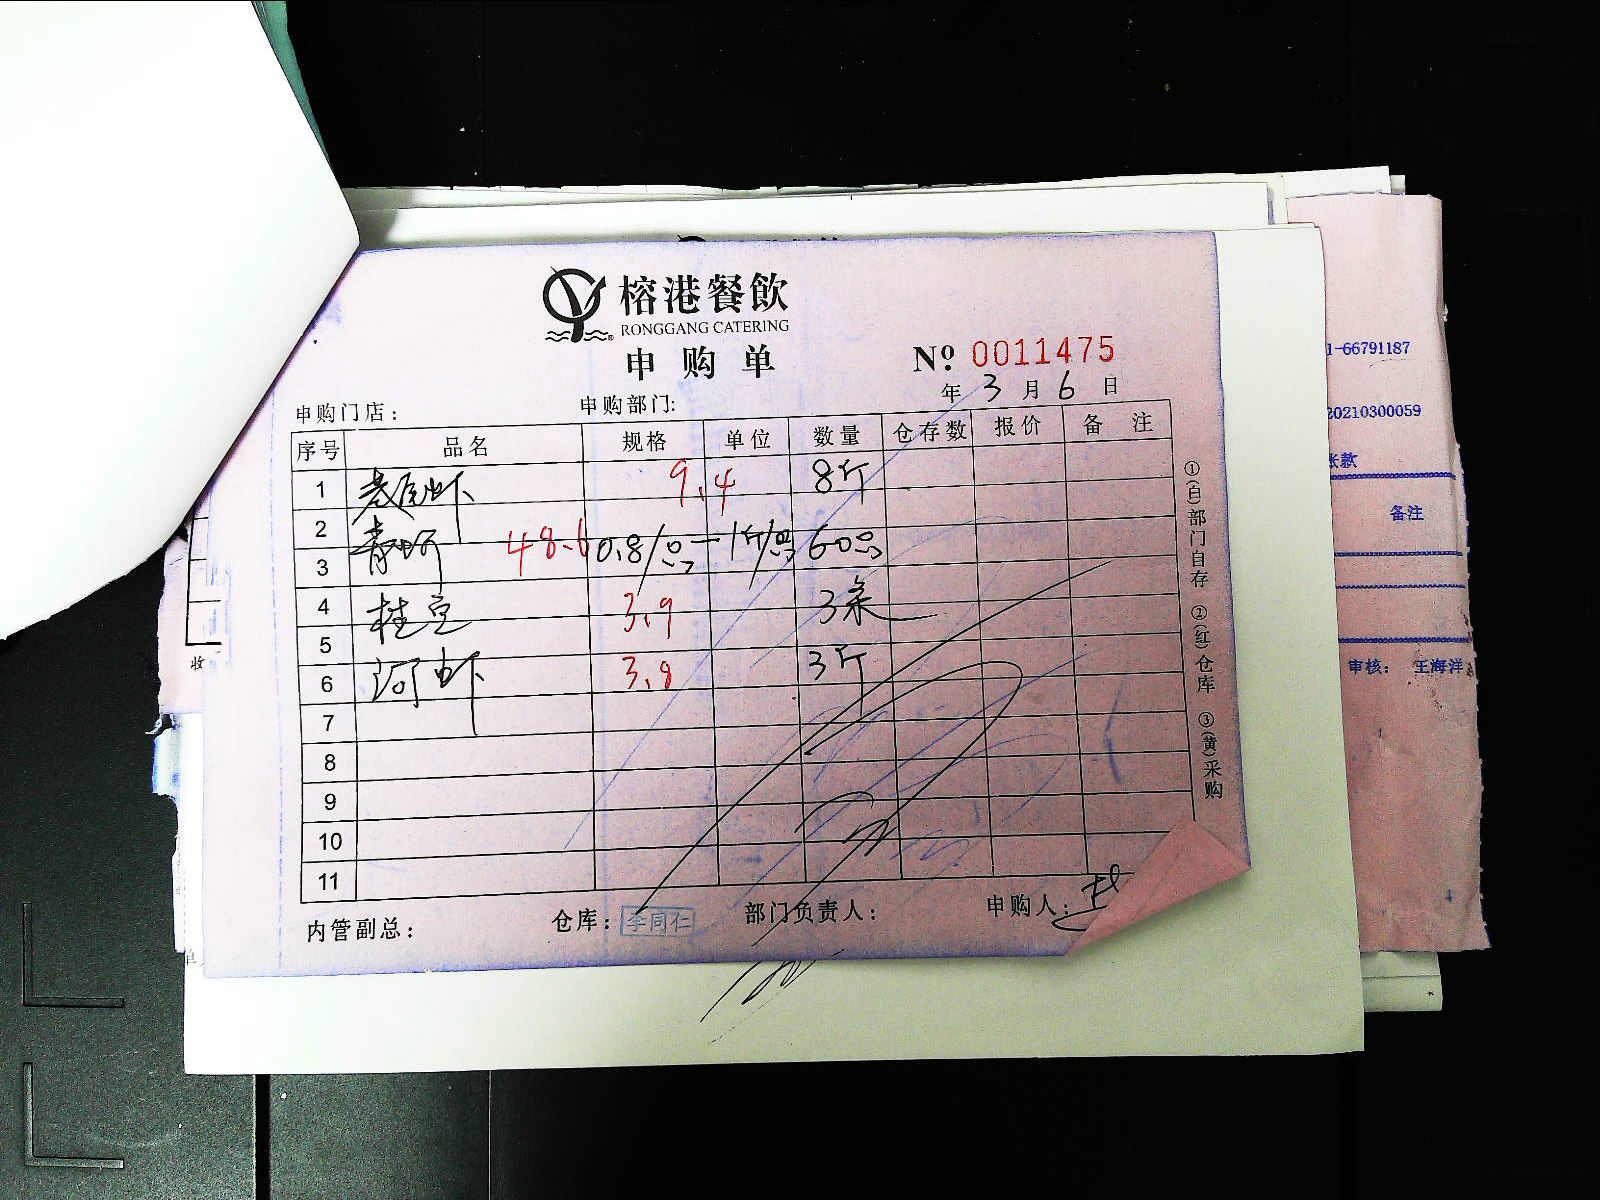 榕港餐飲
RONGGANG CATERING
申购单
№ 0011475
年 3 月 6 日
申购门店： 申购部门:
序号 品名 规格 单位 数量 仓存数 报价 备注
1 老虎虾 9.4 8斤
2
3 青蚵 48.6 0.8/只-1斤/只 60只
4 桂鱼 3.9 3条
5
6 河虾 3.8 3斤
7
8
9
10
11
内管副总： 仓库：李同仁 部门负责人： 申购人：
①(白)部门自存 ②(红)仓库 ③(黄)采购
1-66791187
20210300059
账款
备注
审核： 王海洋
收
单